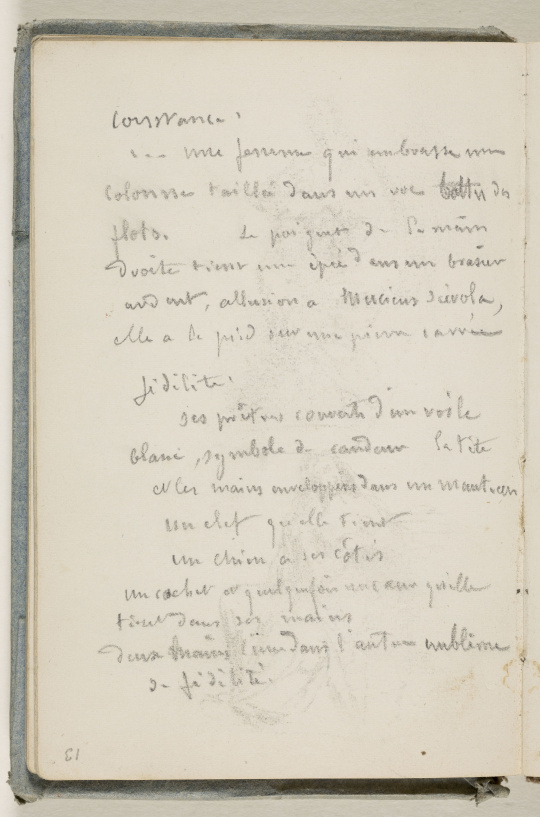 Constance.
une femme qui embrasse une
colonne taillé dans un roc battu des
flots. Le poignet de la main
droite tient une épée dans un brasier
ardent, allusion a Mucius Scévola,
elle a le pied sur une pierre carrée
fidélité.
ses prêtres couverts d'un voile
blanc, symbole de candeur la tête
et les mains enveloppées dans un manteau
un clef qu'elle tient
un chien a ses côtés
un cachet et quelquefois un cœur qu'elle
tient dans ses mains
deux mains l'une dans l'autre emblême
de fidélité.
13